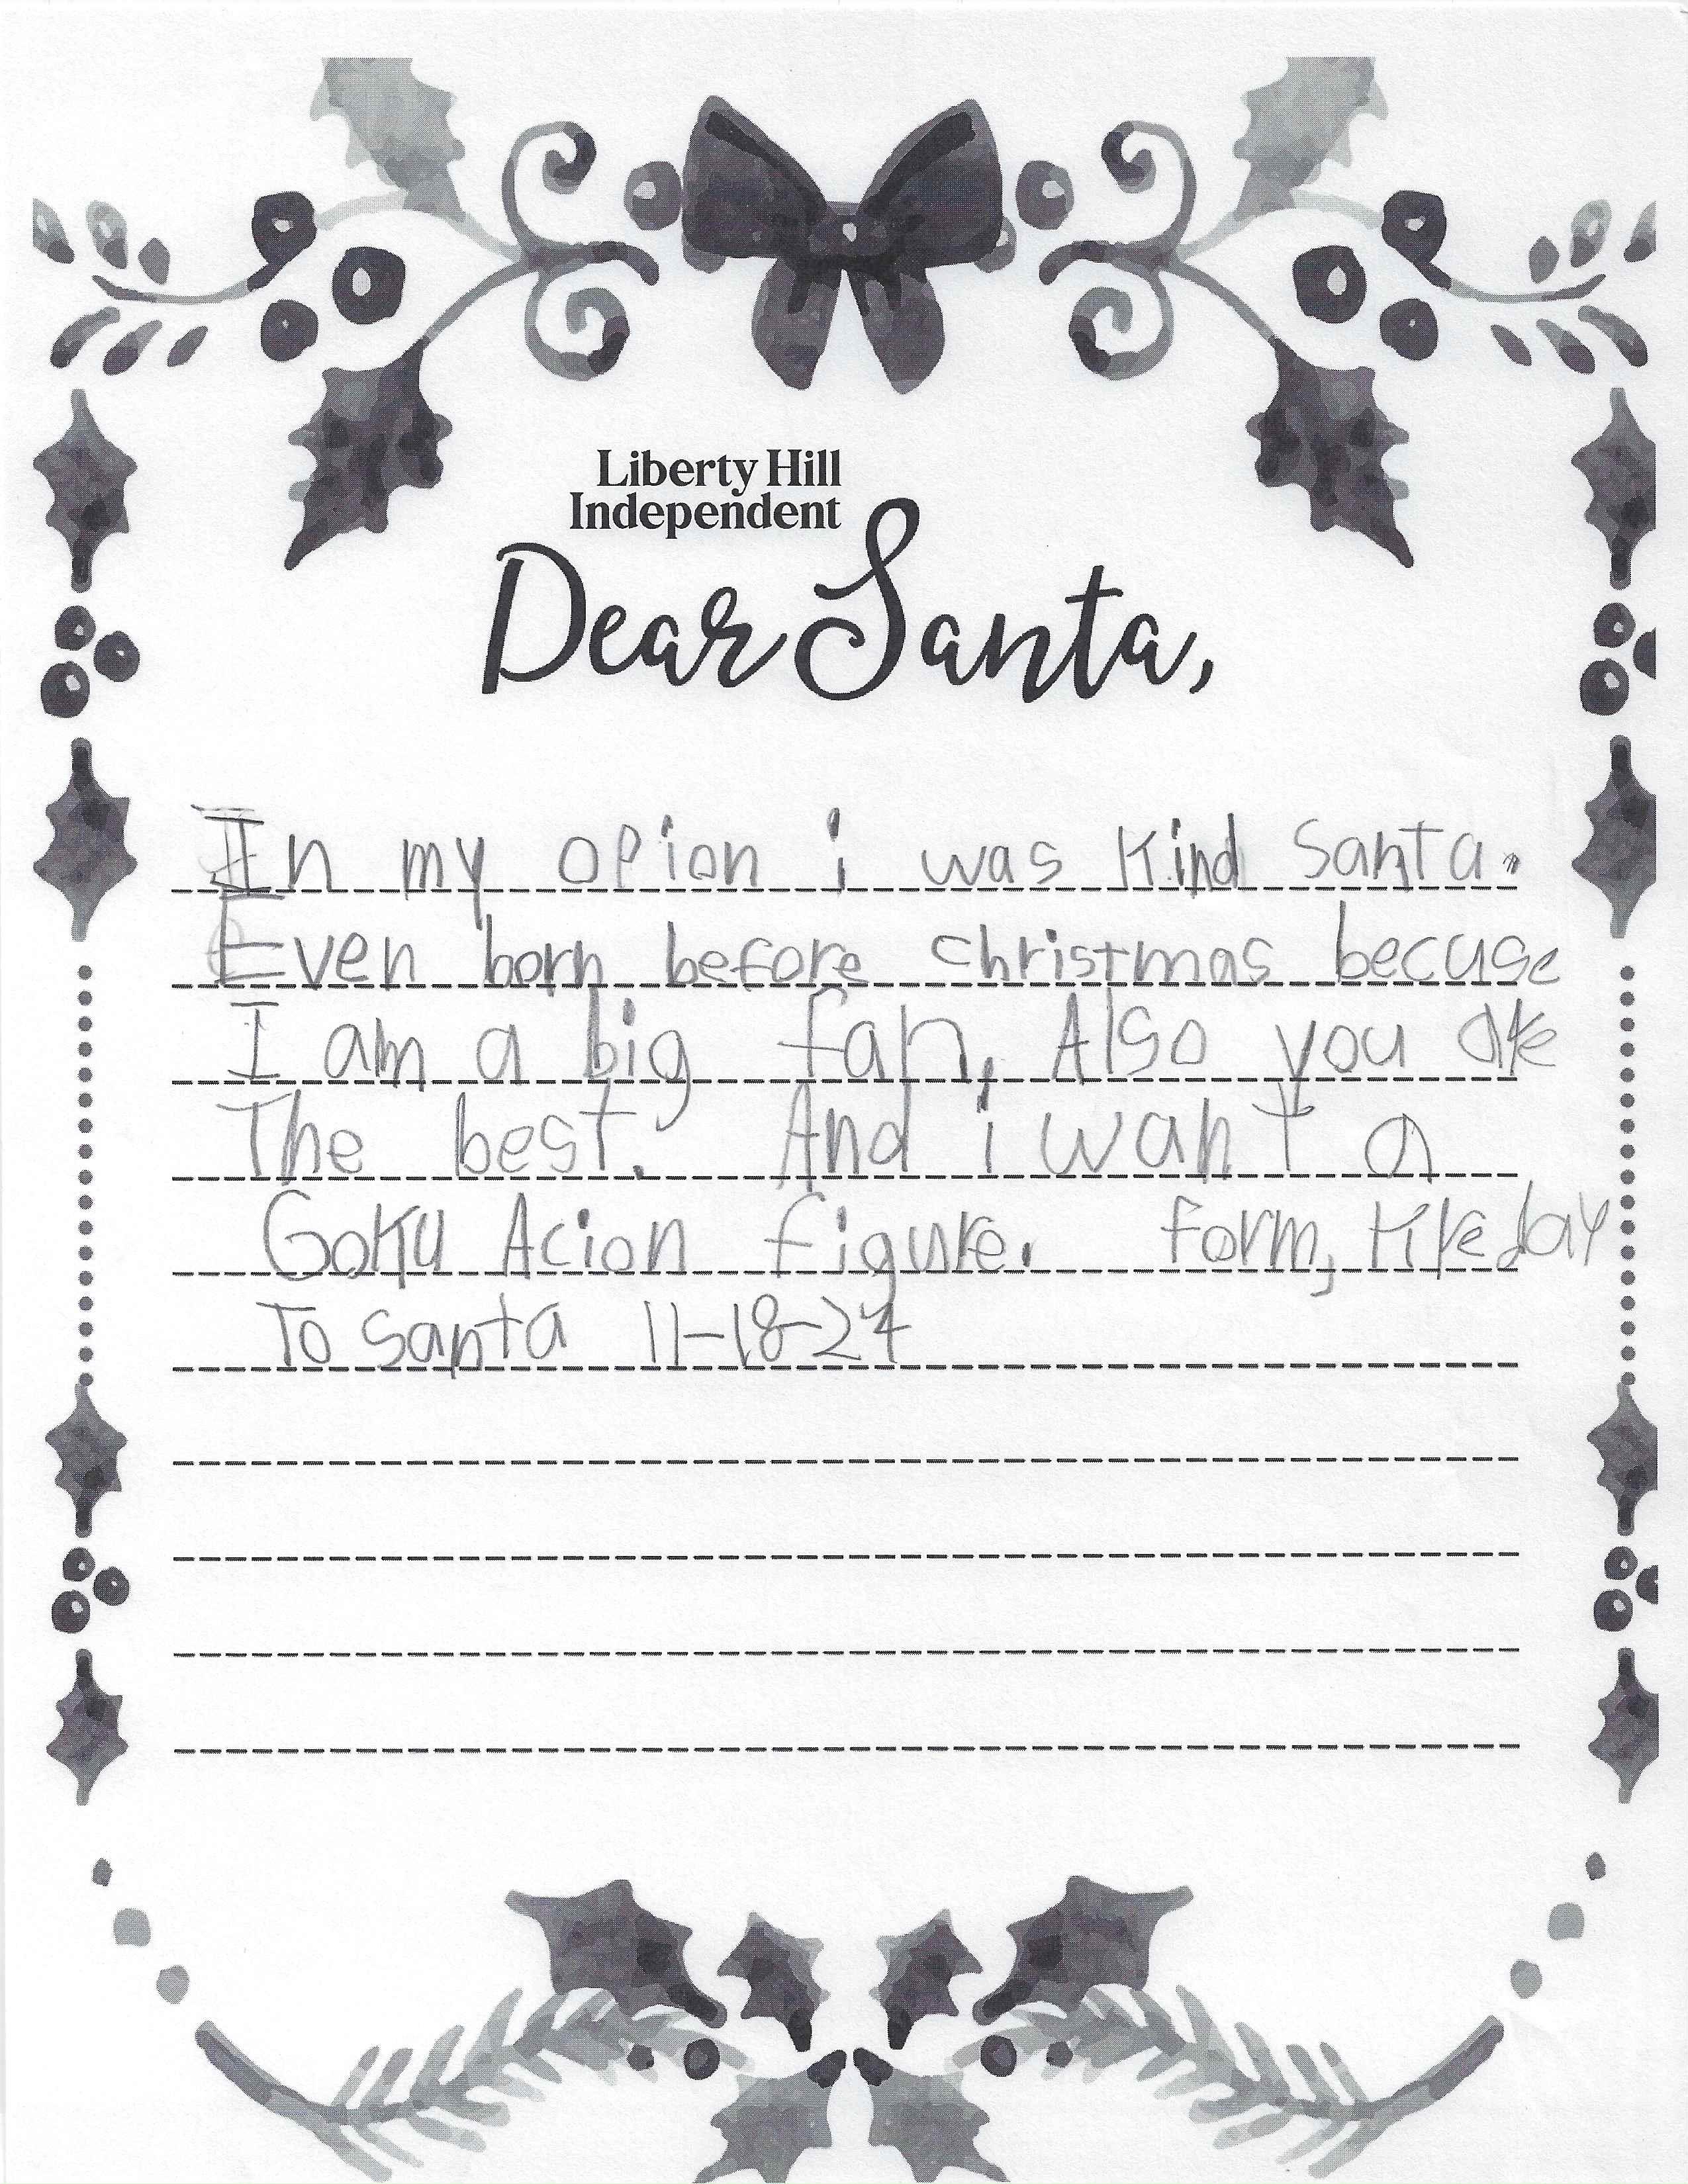 Liberty Hill
Independent
Dear Santa,
In my opion i was Kind Santa.
Even born before christmas becuse
I am a big fan, Also you are
The best. And i want a
Goku Acion figure. form, Kreday
To Santa 11-18-24